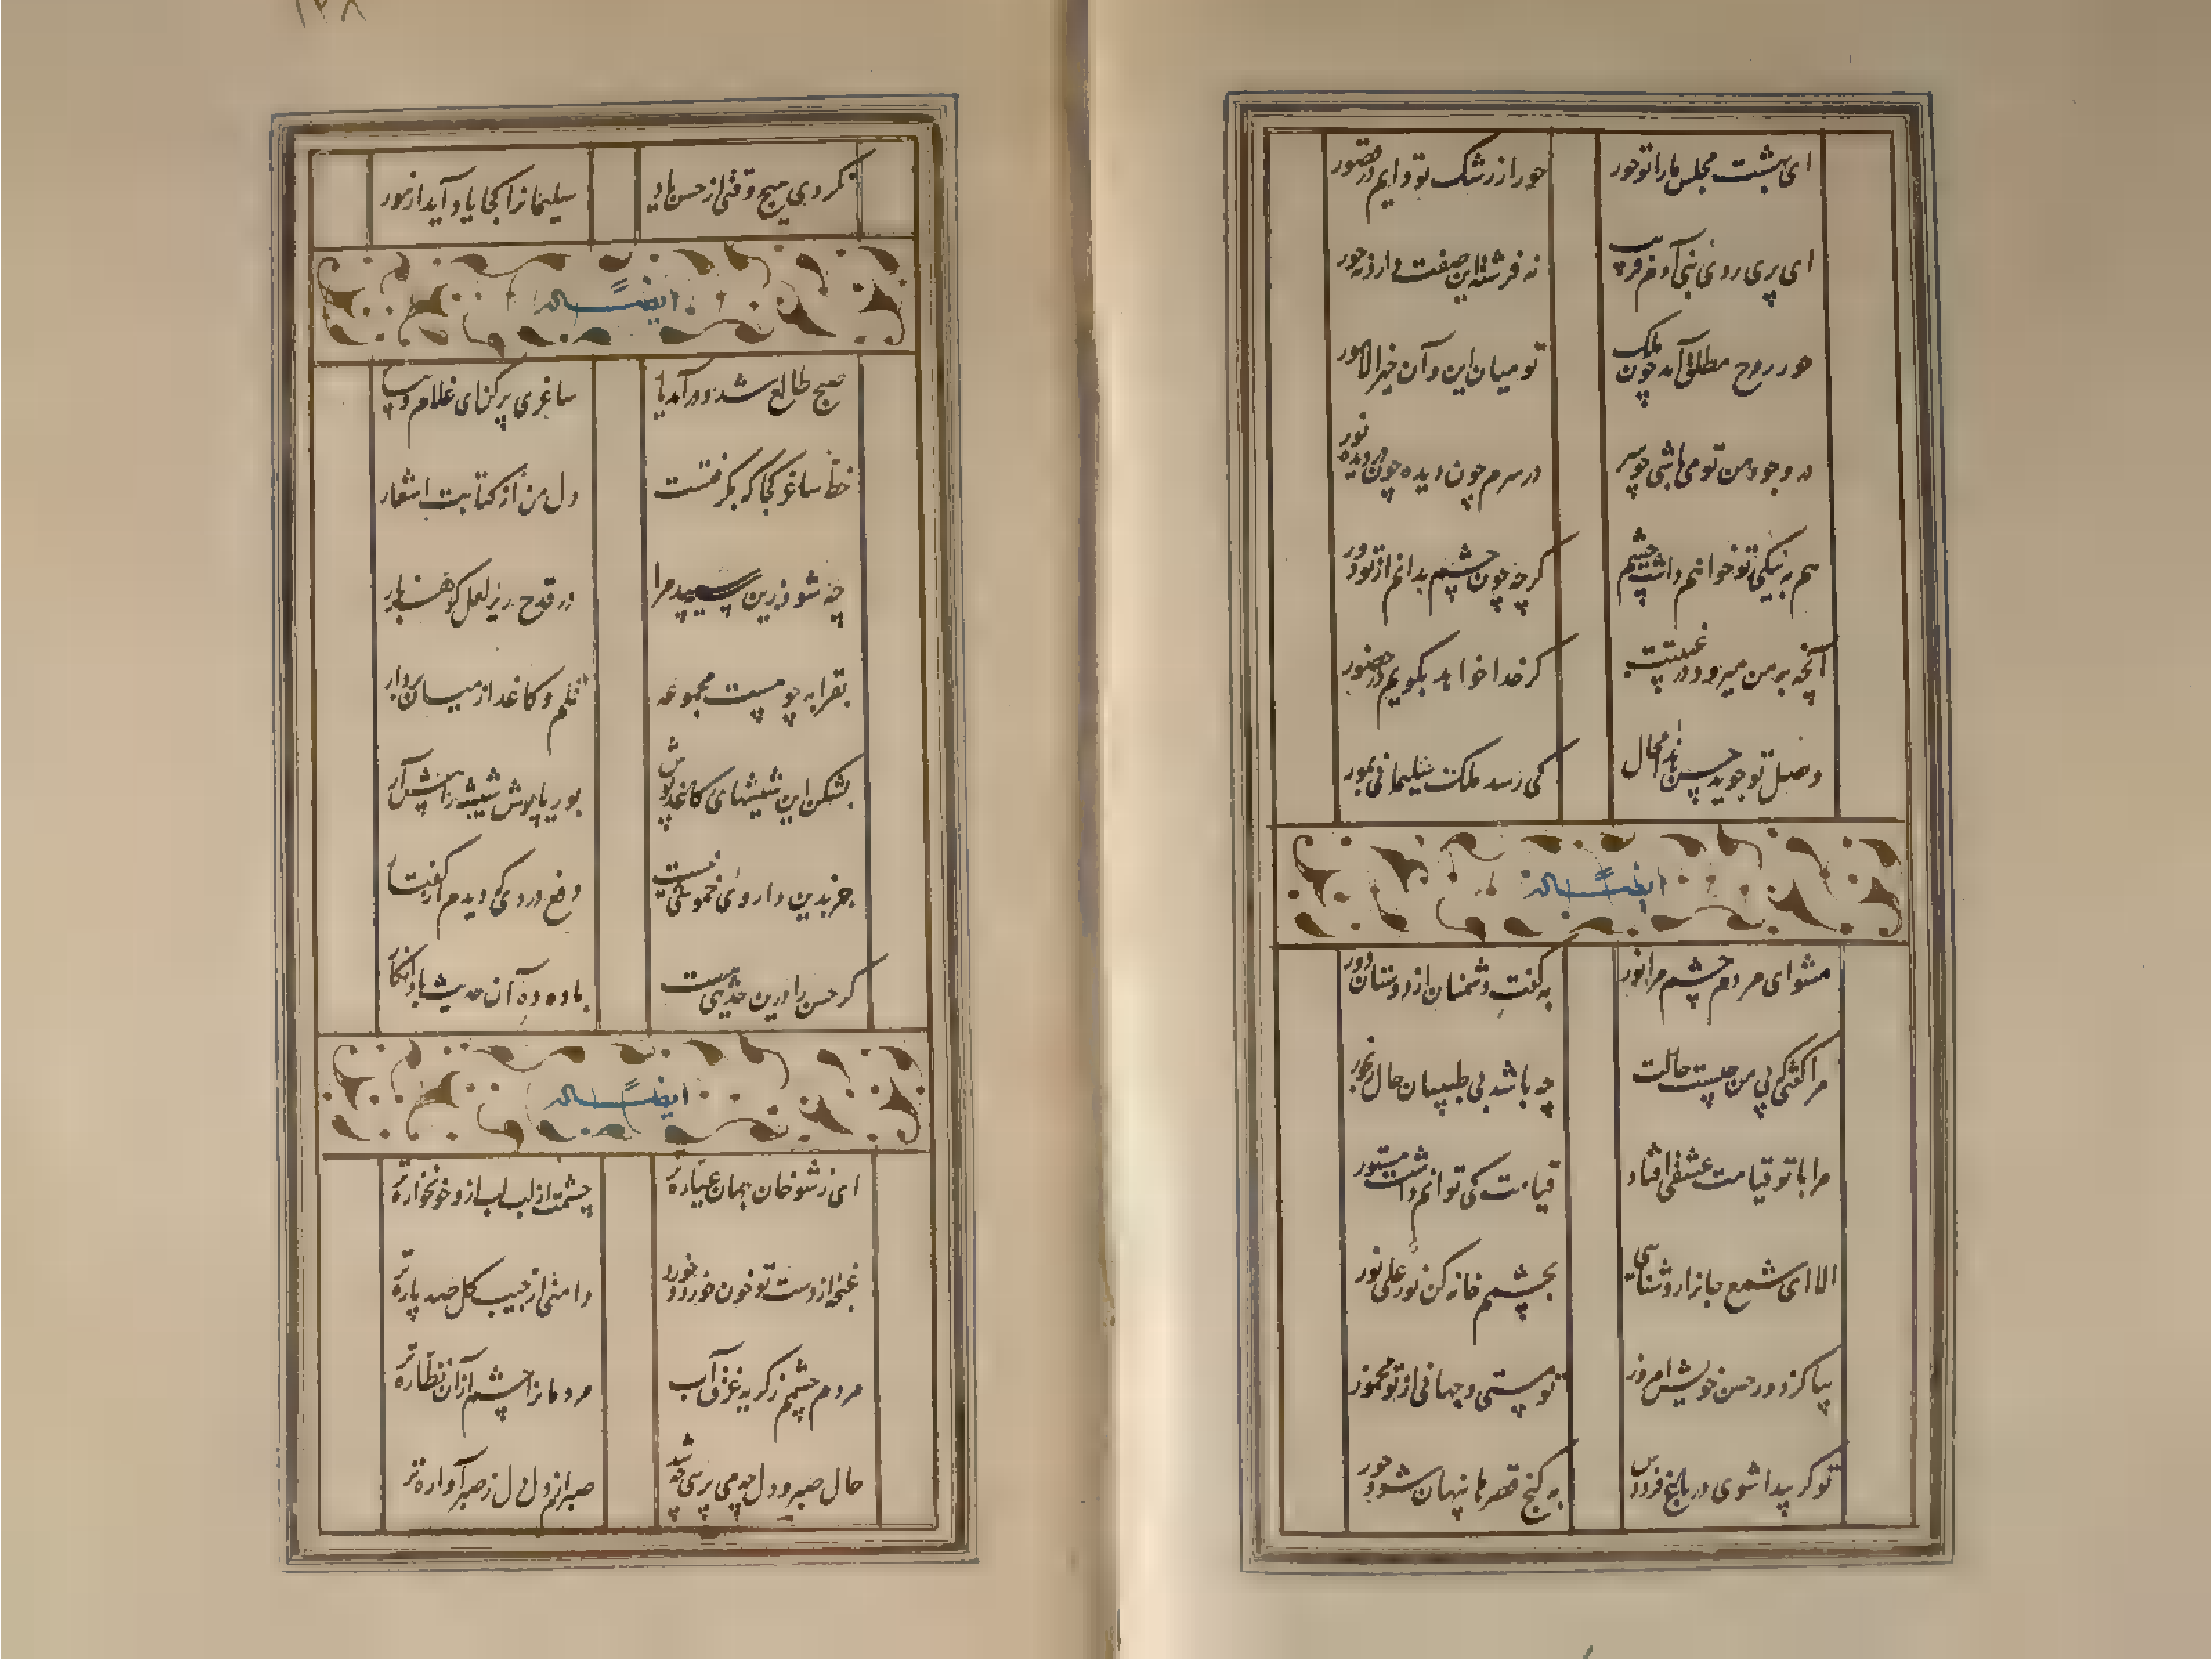 ای بهشت مجلس ما را تو حور
حور از رشک تو دایم در قصور
ای پری روی بنی آدم فریب
نه فرشته این صفت دارد نه حور
حور روح مطلق آمد چون ملک
تو میان این و آن خیر الامور
در وجود من تو می باشی چو سر
در سرم چون دیده چون در دیده نور
هم به نیکی تو خواهم داشت چشم
گرچه چون چشم بدانم از تو دور
آنچه بر من میرود در غیبتت
گر خدا خواهد بگویم در حضور
وصل تو جوید حسن اما محال
کی رسد ملک سلیمانی بمور
ایضاً له
مشو ای مردم چشم مرا نور
به گفت دشمنان از دوستان دور
مرا گفتی که بی من چیست حالت
چه باشد بی طبیبان حال رنجور
مرا با تو قیامت عشقی افتاد
قیامت کی توانم داشت مستور
الا ای شمع جانرا روشنایی
بچشمم خانه کن نور علی نور
بیا کز دور حسن خویش امروز
تو مستی و جهانی از تو مخمور
تو گر پیدا شوی در باغ فردوس
به کنج قصرها پنهان شود حور
نکردی هیچ وقتی از حسن یاد
سلیمانرا کجا یاد آید از مور
ایضاً له
صبح طالع شد و در آمد یار
ساغری پر کن ای غلام و بیار
خط ساغر کجا که بگرفت
دل من از کتابت اشعار
چه شود زین سپید مرا
در قدح ریز لعل گوهربار
بقرابه چو مست مجموعه
قلم و کاغذ از میان بردار
بشکن این شیشهای کاغذپوش
بوریاپوش شیشه را پیش آر
جز بدین داروی خموشی نیست
دفع دردی که دیدم از گفتار
گر حسن را درین حدیثی هست
باده ده آن حدیث باد انگار
ایضاً له
ای ز شوخان جهان عیاره تر
چشمت از لب لب ازو خونخواره تر
غنچه از دست تو خون خورد و خورد
دامنش از جیب گل صد پاره تر
مردم چشمم ز گریه غرق آب
مردمانرا چشم از آن نظاره تر
حال صبر و دل چه می پرسی چه شد
صبر از دل دل ز صبر آواره تر